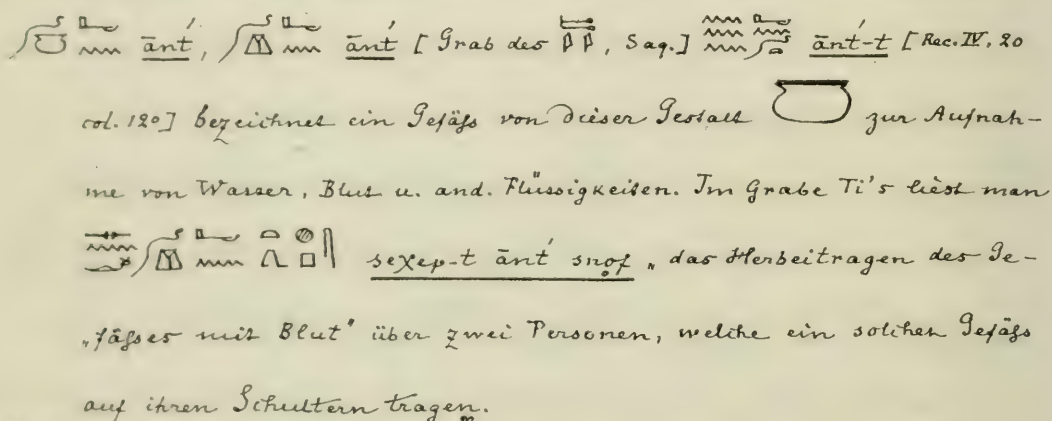 ānt́, ānt́ [Grab des, Saq.] ānt́-t [Rec. IV. 20
col. 120] bezeichnet ein Gefäſs von dieser Gestalt zur Aufnah-
me von Wasser, Blut u. and. Flüssigkeiten. Im Grabe Ti's liest man
seχep-t ānt́ snof „das Herbeitragen des Ge-
„fäſses mit Blut" über zwei Personen, welche ein solches Gefäſs
auf ihren Schultern tragen.